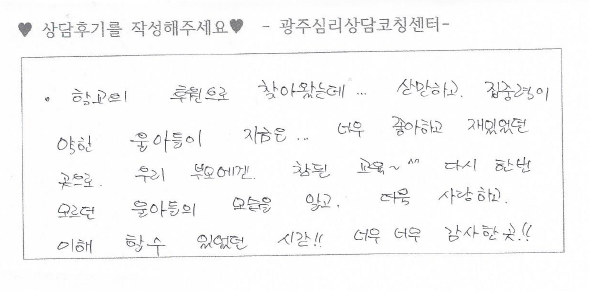 ♥ 상담후기를 작성해주세요♥ - 광주심리상담코칭센터-
• 학교의 후원으로 찾아왔는데... 산만하고. 집중력이
약한 울아들이 지금은... 너무 좋아하고 재밌었던
곳으로. 우리 부모에겐. 참된 교육~^^ 다시 한번
모르던 울아들의 모습을 알고. 더욱 사랑하고.
이해 할수 있었던 시간!! 너무 너무 감사한곳!!